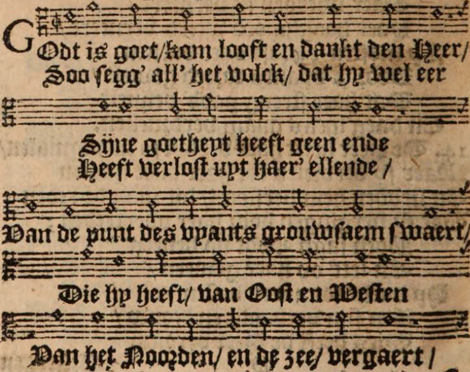 Godt is goet/kom looft en dankt den Heer/
Soo segg' all' het volck/ dat hy wel eer
Sijne goetheyt heeft geen ende
Heeft verlost uyt haer' ellende /
Van de punt des vyants grouwsaem swaert/
Die hy heeft/ van Oost en Westen
Van het Noorden/ en de zee/ vergaert /